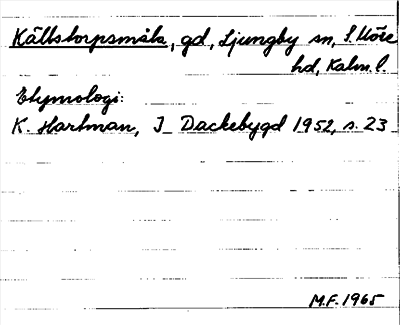 Källstorpsmåla, gd, Ljungby sn, S. Möre
hd, Kalm. l.
Etymologi:
K. Hartman, I Dackebygd 1952, s. 23
M.F. 1965